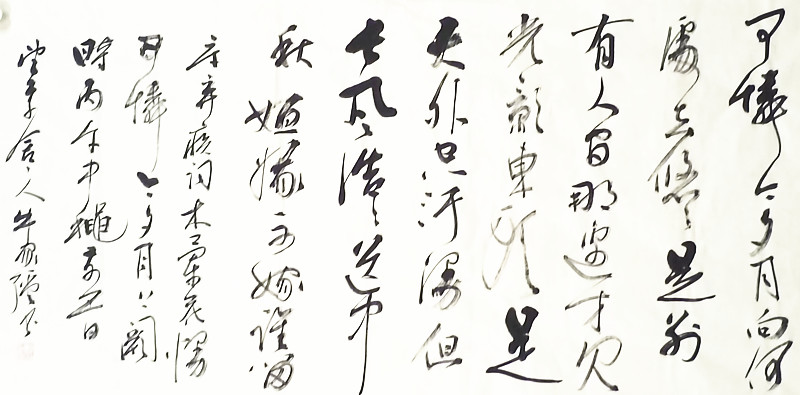 可憐今夕月向何
處去悠悠是别
有人間那邊才见
光影東頭是
天外空汗漫但
长风浩浩送中
秋姮娥不嫁誰留
辛弃疾词木蘭花慢
可憐今夕月上闋
時丙午中龝前五日
望京舍人